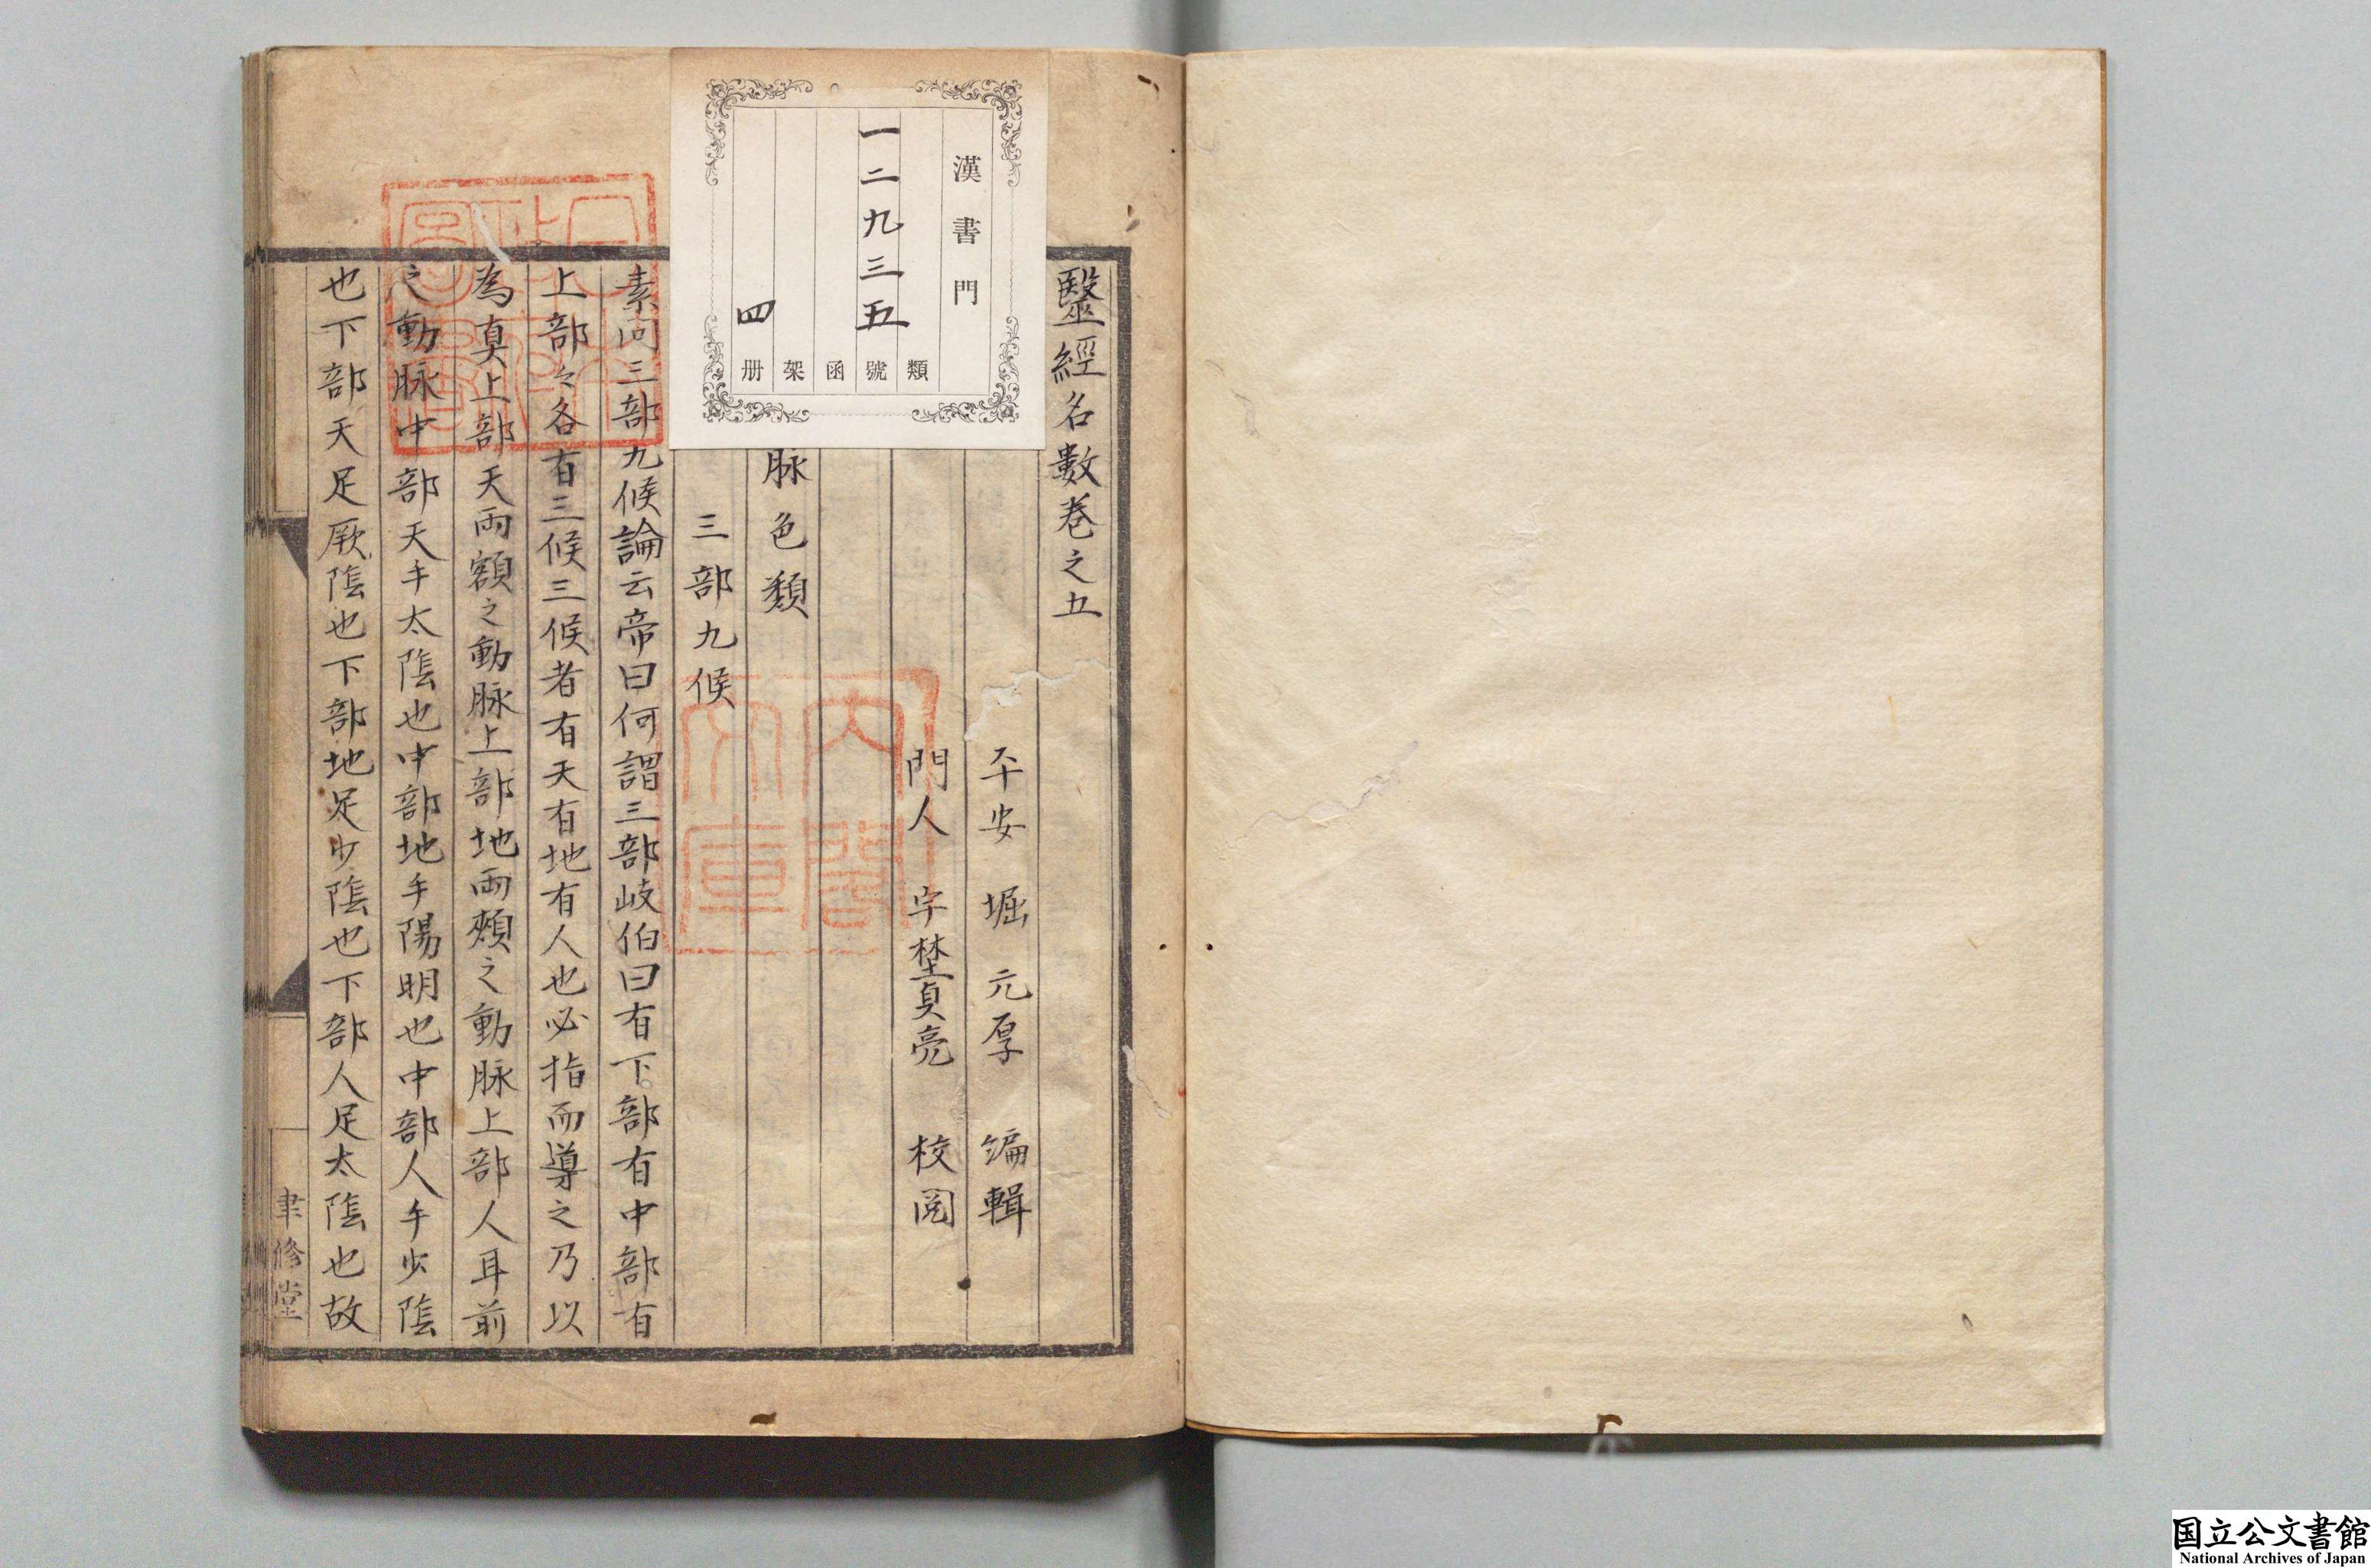 漢書門
類
一二九三五號
函
架
四册
毉經名數卷之五
平安 堀 元厚 編輯
門人 宇埜貞亮 校閲
脉色類
三部九候
素问三部九候論云帝曰何謂三部岐伯曰有下部有中部有
上部々各有三候三候者有天有地有人也必指而導之乃以
為真上部天兩額之動脉上部地兩頰之動脉上部人耳前
之動脉中部天手太陰也中部地手陽明也中部人手少陰
也下部天足厥陰也下部地足少陰也下部人足太陰也故
聿修堂
内閣文庫
国立公文書館
National Archives of Japan